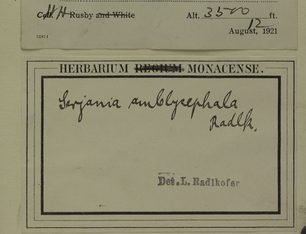 Coll. H H Rusby and White Alt. 3500 ft.
August, 12 1921
HERBARIUM REGIUM MONACENSE.
Serjania amblycephala
Radlk.
Det. L. Radlkofer